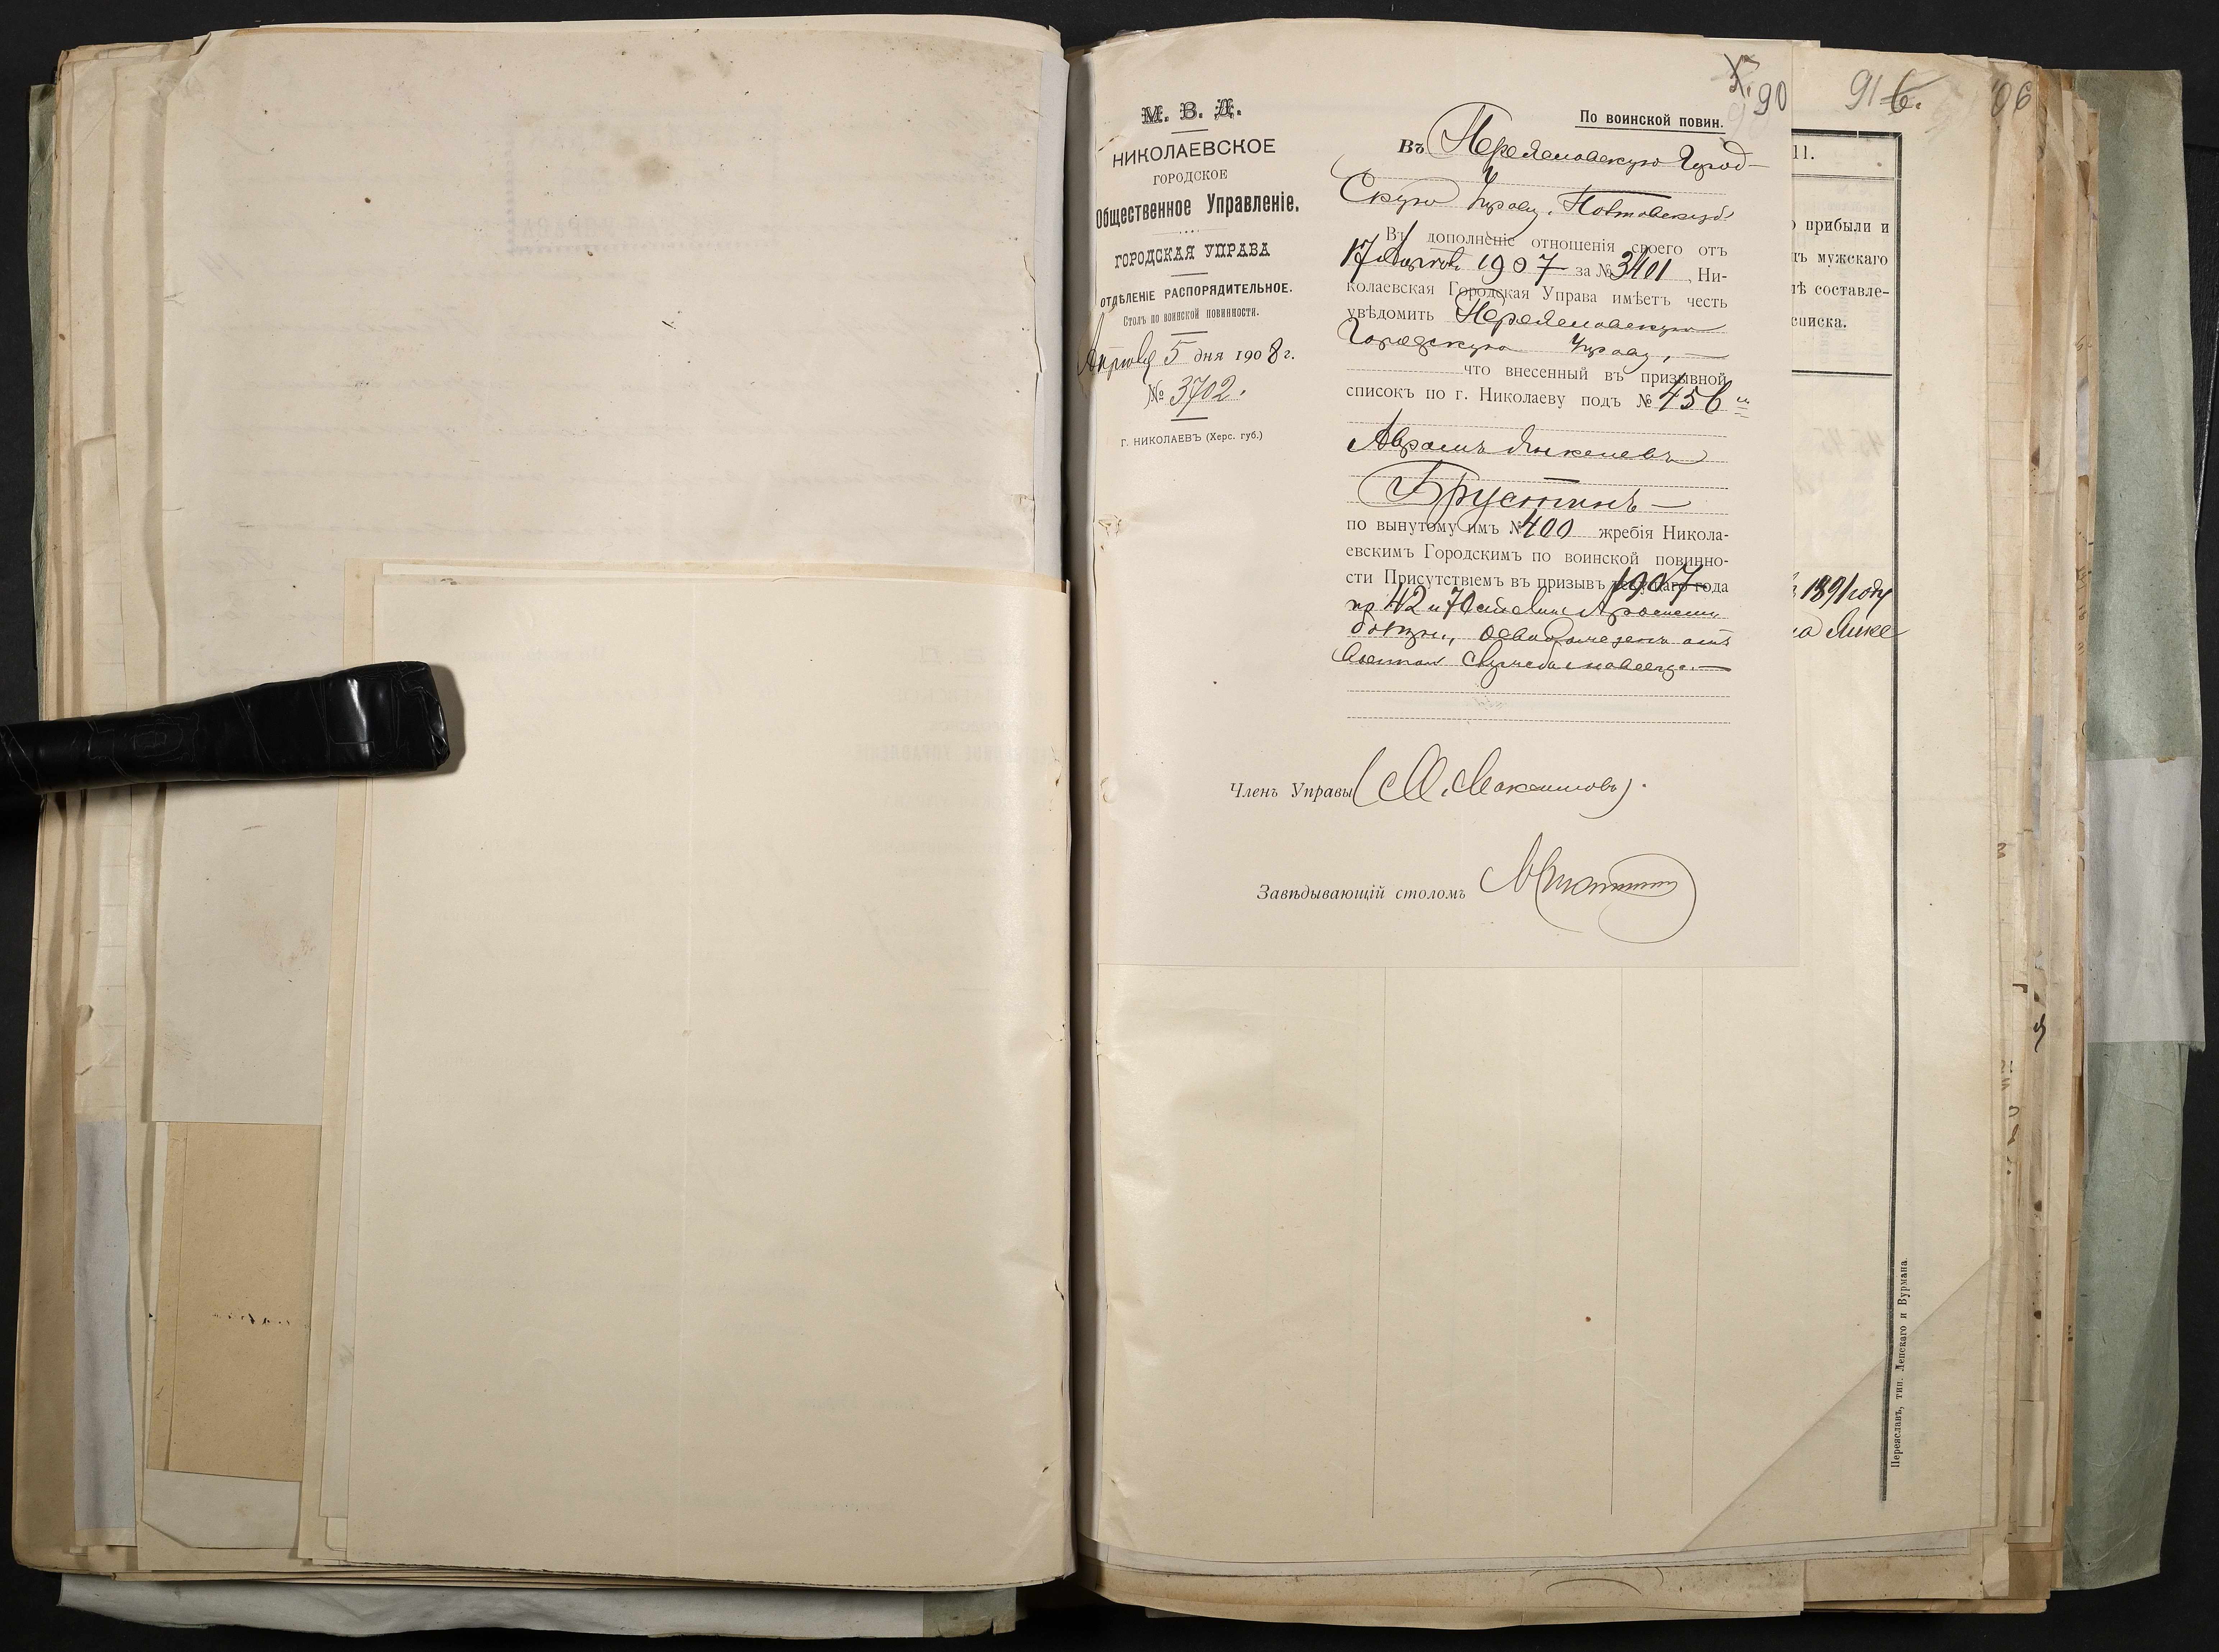 М. В. Д.
НИКОЛАЕВСКОЕ
ГОРОДСКОЕ
Общественное Управленіе.
ГОРОДСКАЯ УПРАВА
ОТДѢЛЕНІЕ РАСПОРЯДИТЕЛЬНОЕ.
Столъ по воинской повинности.
Апрѣля 5 дня 1908 г.
№ 3702.
Г. НИКОЛАЕВЪ (Херс. губ.)
90
По воинской повин.
Въ Переяславскую Город-
скую Управу, Полтавской
Въ дополненіе отношенія своего отъ
17 1907 за № 3401, Ни-
колаевская Городская Управа имѣетъ честь
увѣдомить Переяславскую
Городскую Управу,
что внесенный въ призывной
списокъ по г. Николаеву подъ № 456
Аврамъ Янкелевъ
Брустинъ
по вынутому имъ № 400 жребія Никола-
евскимъ Городскимъ по воинской повинно-
сти Присутствіемъ въ призывъ 1907 года
по 42 и 70
освобожденъ отъ
службы навсегда.
Членъ Управы (М. Максимовъ).
Завѣдывающій столомъ
91 6.
06
11.
прибыли и
мужскаго
составле-
списка.
1891 году
Переяславъ, тип. Лепскаго и Вурмана